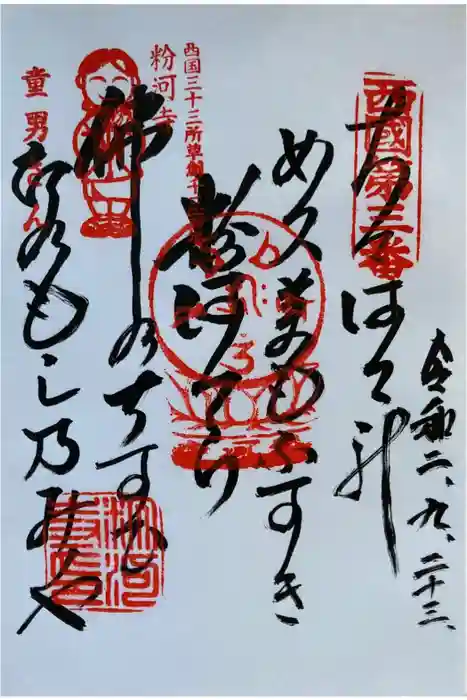 令和二、九、二十三、
西國第三番
ちゝはゝの
めくみもふかき
粉河てら
佛のちかひ
たのもし乃身や
西国三十三所草創千
粉河寺
童男さん